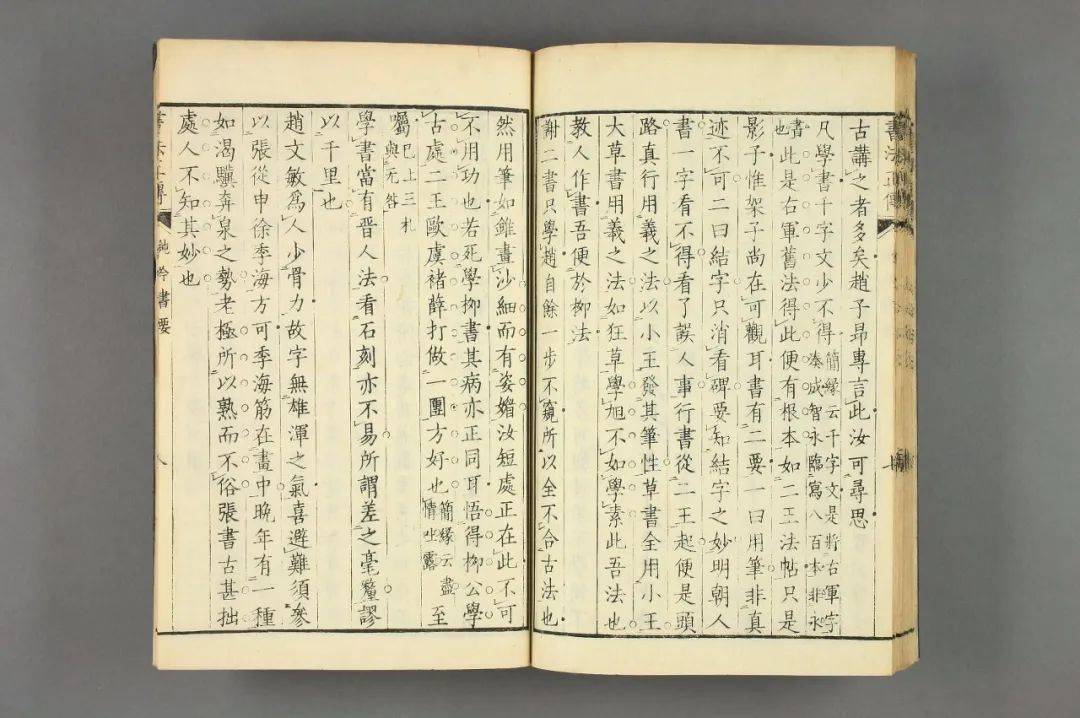 書法正傳
古講之者多矣趙子昂專言此汝可尋思
凡學書千字文少不得簡緣云千字文是將右軍字
湊成智永臨寫八百本非永
書也此是右軍舊法得此便有根本如二王法帖只是
影子惟架子尚在可觀耳書有二要一曰用筆非真
迹不可二曰結字只消看碑要知結字之妙明朝人
書一字看不得看了誤人事行書從二王起便是頭
路真行用羲之法以小王發其筆性草書全用小王
大草書用羲之法如狂草學旭不如學素此吾法也
教人作書吾便於柳法
謝二書只學趙自餘一步不窺所以全不合古法也
然用筆如錐畫沙細而有姿媚汝短處正在此不可
不用功也若死學柳書其病亦正同耳悟得柳公學
古處二王歐虞褚薛打做一團方好也簡緣云盡
情吐露至
囑已上三札
與无咎
學書當有晋人法看石刻亦不易所謂差之毫釐謬
以千里也
趙文敏為人少骨力故字無雄渾之氣喜避難須參
以張從申徐季海方可季海筋在畫中晚年有一種
如渴驥奔泉之勢老極所以熟而不俗張書古甚拙
處人不知其妙也
書法正傳
鈍吟書要
八